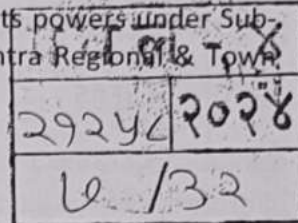 ts powers under Sub-
ntra Regional & Town
४
२१२५८ २०२४
७ /३२